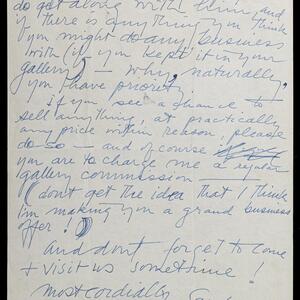 do get along with him, and
if there is anything you think
you might do any business
with (if you kept it in your
gallery) — why, naturally,
you have priority.
if you see a chance to
sell anything, at practically
any price within reason, please
do so — and of course
you are to charge me a regular
gallery commission —
(don't get the idea that I think
I'm making you a grand business
offer!)
And don't forget to come
+ visit us sometime!
most cordially